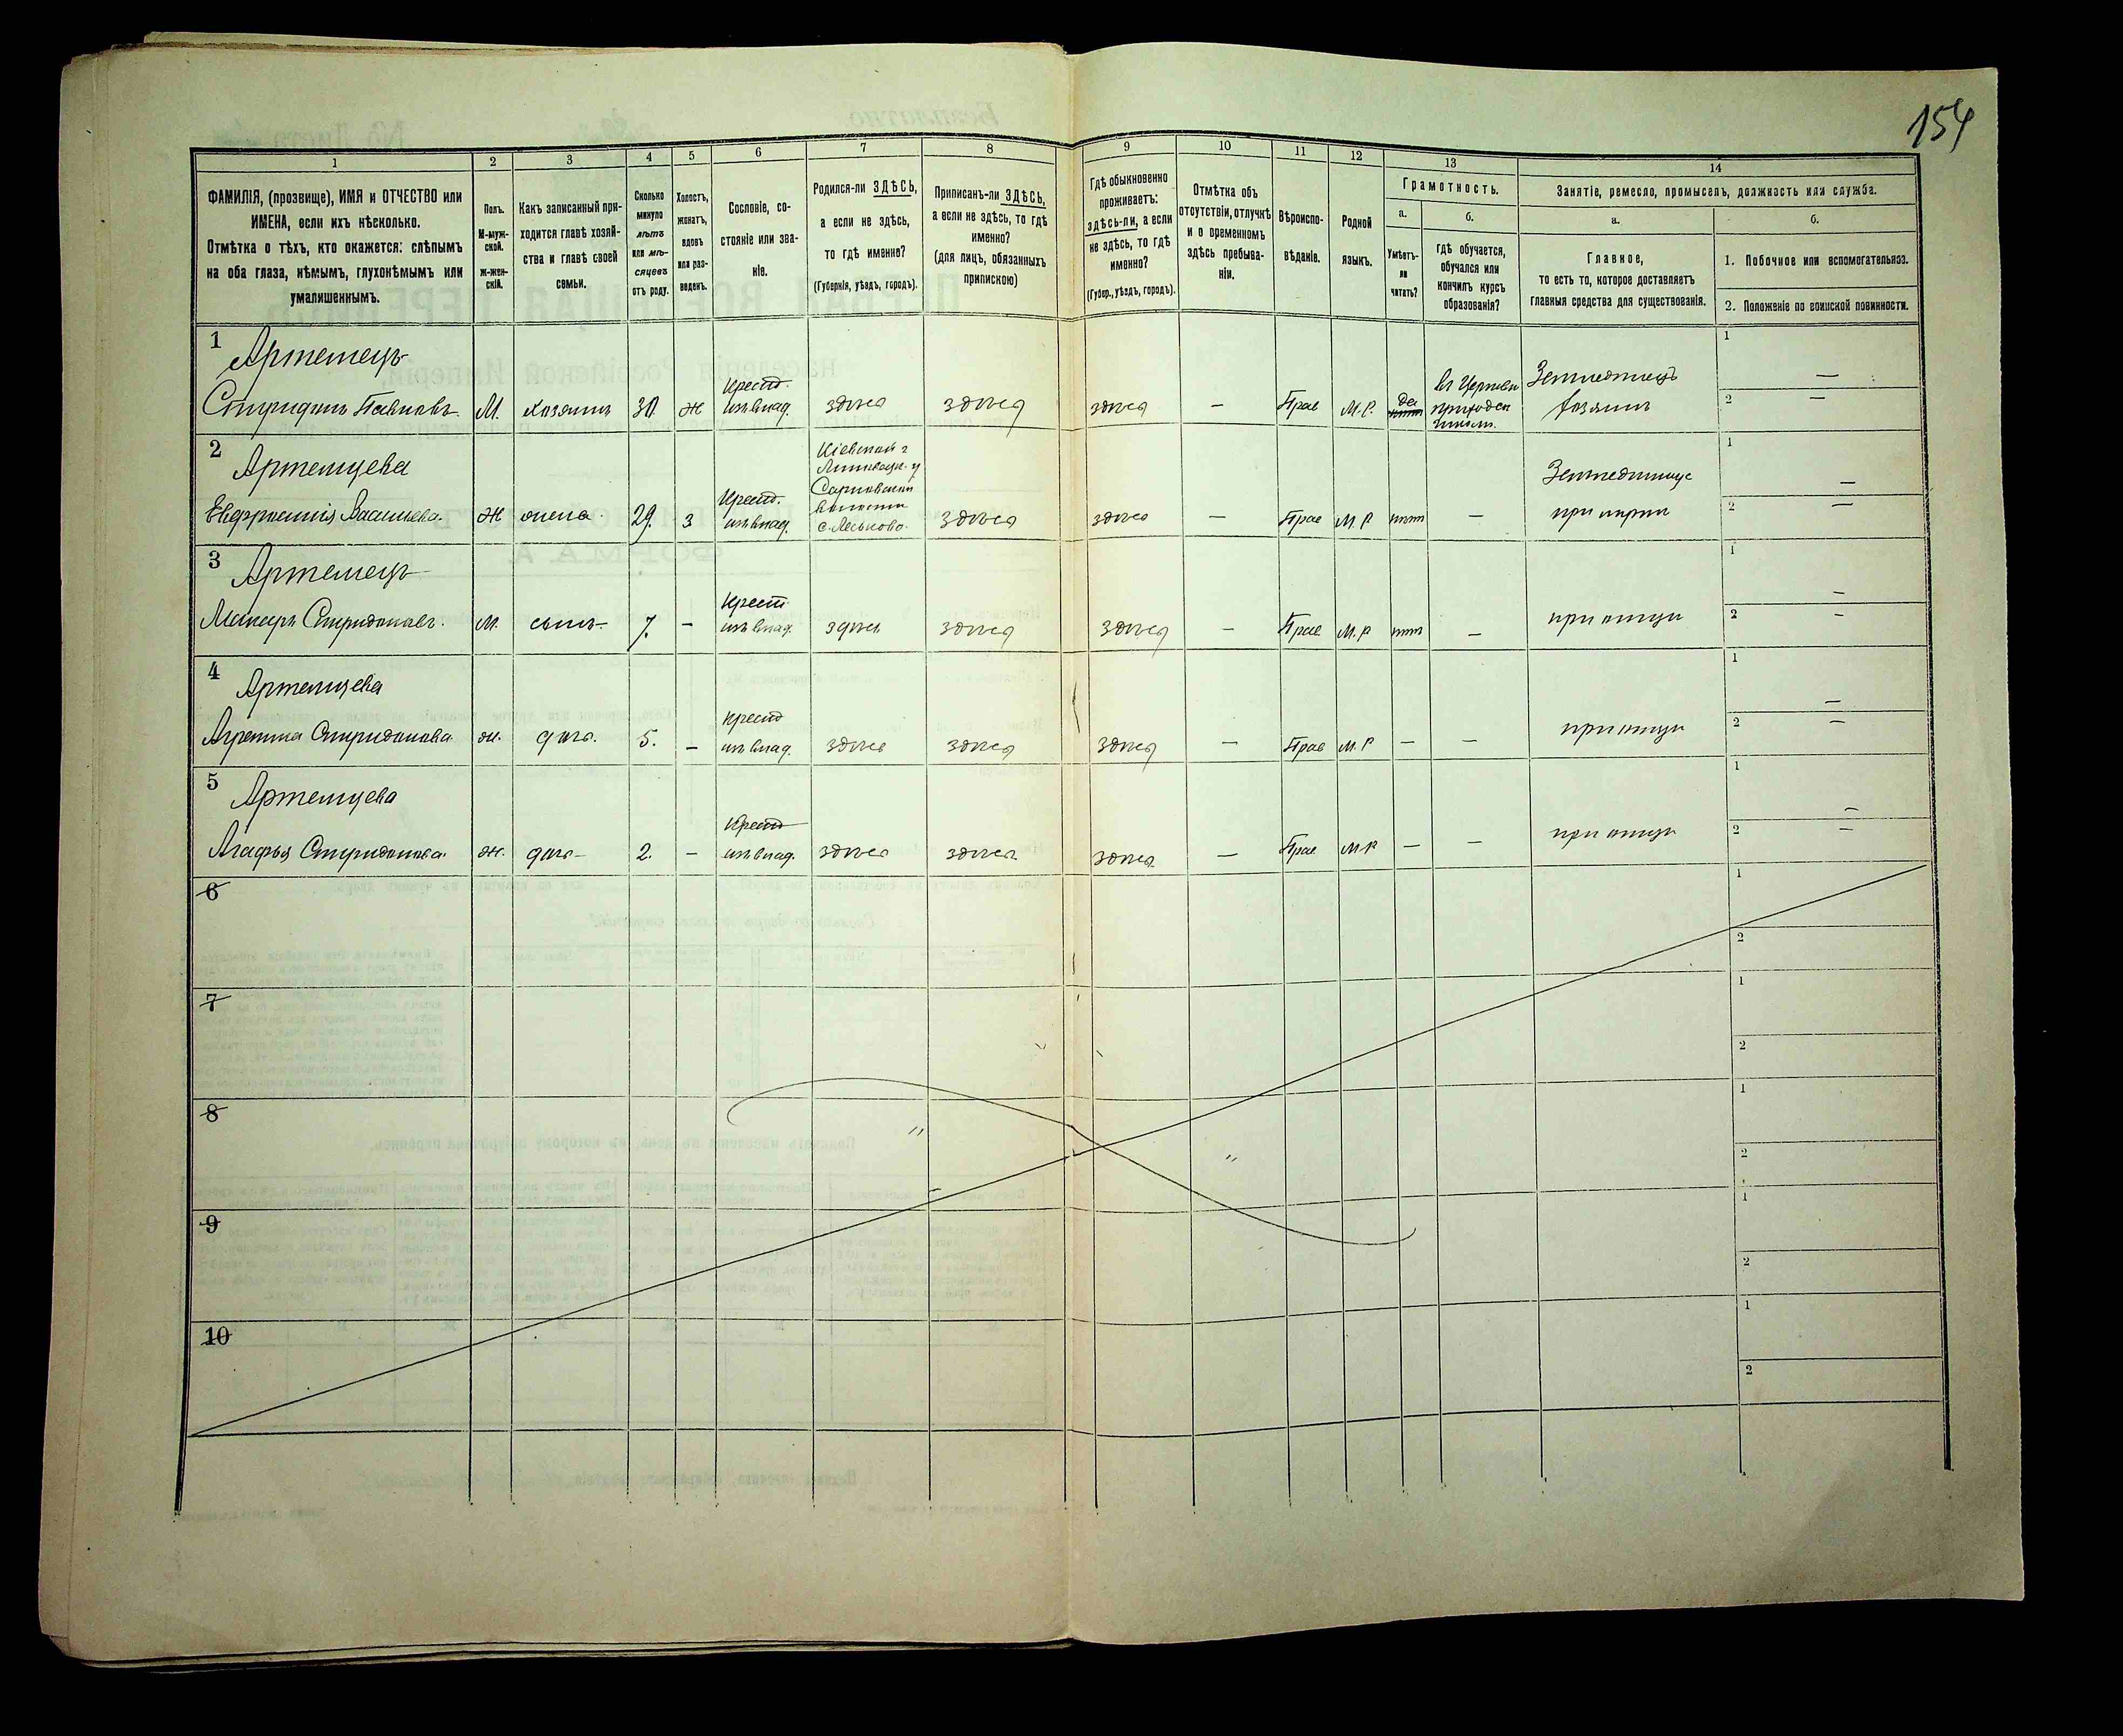 154
1 2 3 4 5 6 7 8 9 10 11 12 13 14
ФАМИЛІЯ, (прозвище), ИМЯ и ОТЧЕСТВО или
ИМЕНА, если ихъ нѣсколько.
Отмѣтка о тѣхъ, кто окажется: слѣпымъ
на оба глаза, нѣмымъ, глухонѣмымъ или
умалишеннымъ.
Полъ.
М-муж-
ской.
Ж-жен-
скій.
Какъ записанный при-
ходится главѣ хозяй-
ства и главѣ своей
семьи.
Сколько
минуло
лѣтъ
или мѣ-
сяцевъ
отъ роду.
Холостъ,
женатъ,
вдовъ
или раз-
веденъ.
Сословіе, со-
стояніе или зва-
ніе.
Родился-ли ЗДѢСЬ,
а если не здѣсь,
то гдѣ именно?
(Губернія, уѣздъ, городъ).
Приписанъ-ли ЗДѢСЬ,
а если не здѣсь, то гдѣ
именно?
(для лицъ, обязанныхъ
припискою)
Гдѣ обыкновенно
проживаетъ:
здѣсь-ли, а если
не здѣсь, то гдѣ
именно?
(Губер., уѣздъ, городъ).
Отмѣтка объ
отсутствіи, отлучкѣ
и о временномъ
здѣсь пребыва-
ніи.
Вѣроиспо-
вѣданіе.
Родной
языкъ.
Грамотность.
а.
Умѣетъ-
ли
читать?
б.
гдѣ обучается,
обучался или
кончилъ курсъ
образованія?
Занятіе, ремесло, промыселъ, должность или служба.
а.
Главное,
то есть то, которое доставляетъ
главныя средства для существованія.
б.
1. Побочное или вспомогательное.
2. Положеніе по воинской повинности.
1 Артемецъ
Спиридонъ Павловъ. М. хозяинъ 30. ж Крест. изъ влад. здѣсь здѣсь здѣсь — Прав М.Р. да въ Церковн приходск школѣ. Земледѣлецъ хозяинъ 1 — 2 —
2 Артемцева
Евфросинія Васильева. Ж жена. 29. з Крест. изъ влад.
Кіевской г
Липовецк. у
волости
здѣсь здѣсь — Прав М.Р нѣтъ — 1 — 2 —
3 Артемецъ
Макаръ Спиридоновъ. М. сынъ 7. — Крест изъ влад. здѣсь здѣсь здѣсь — Прав М.Р нѣтъ — при отцѣ 1 — 2 —
4 Артемцева
Агрипина Спиридонова ж. дочь. 5. — крест изъ влад. здѣсь здѣсь здѣсь — Прав М.Р — — при отцѣ 1 — 2 —
5 Артемцева
Агафья Спиридонова. ж. дочь 2. — Крест изъ влад. здѣсь здѣсь здѣсь — Прав М.Р — — при отцѣ 1 — 2 —
6 1 2
7 1 2
8 1 2
9 1 2
10 1 2